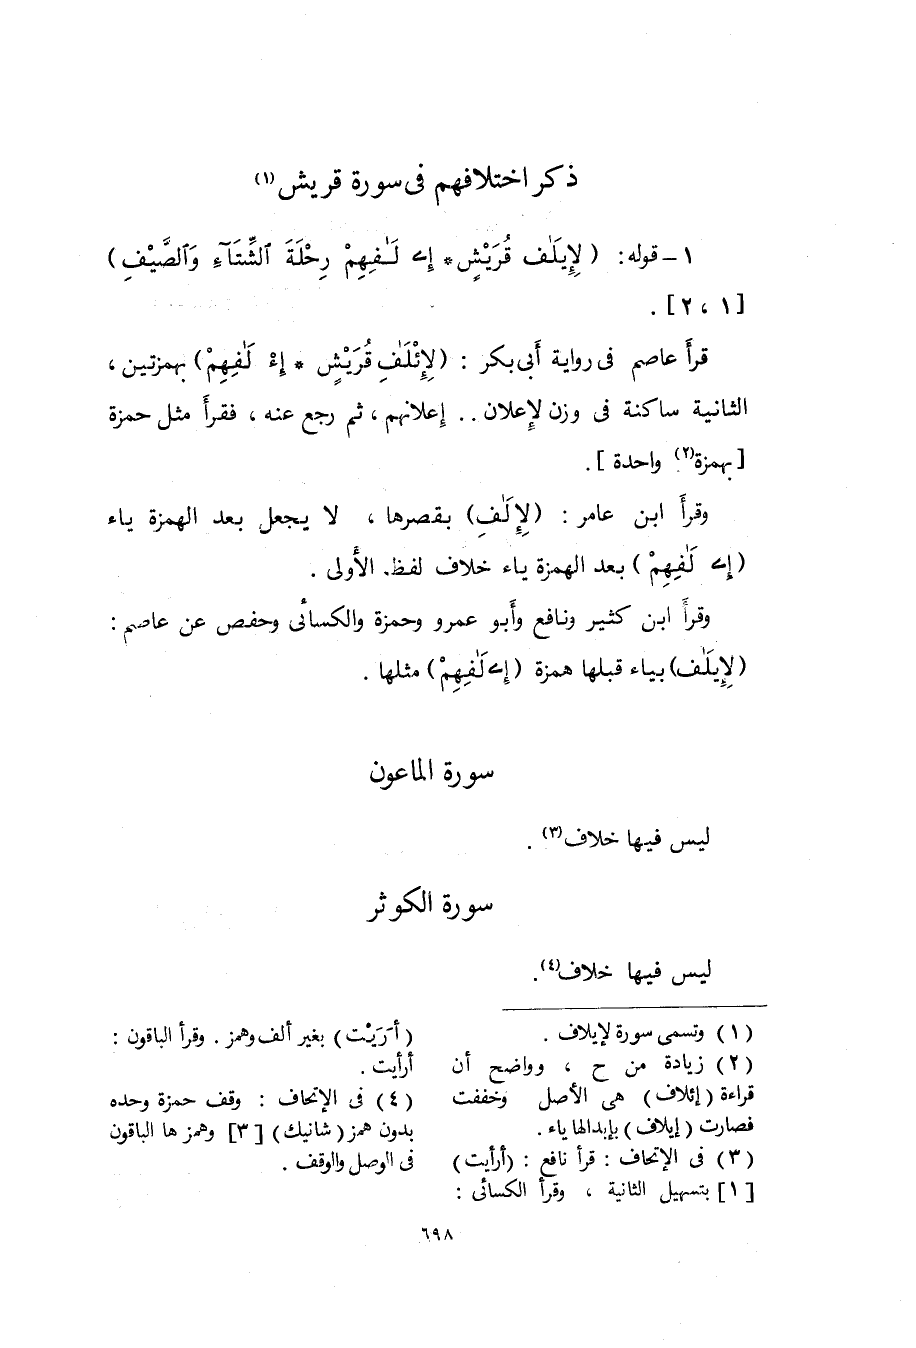 ذكر اختلافهم فى سورة قريش(١)
١ – قوله: ( لِإِيلَٰفِ قُرَيْشٍ * إِۦ لَٰفِهِمْ رِحْلَةَ ٱلشِّتَآءِ وَٱلصَّيْفِ )
[ ١ ، ٢ ] .
قرأ عاصم فى رواية أَبى بكر : ( لِإِئْلَٰفِ قُرَيْشٍ * إِءْ لَٰفِهِمْ ) بهمزتين ،
الثانية ساكنة فى وزن لإِعلان .. إِعلانهم ، ثم رجع عنه ، فقرأَ مثل حمزة
[ بهمزة(٢) واحدة ] .
وقرأَ ابن عامر : ( لِإِلَٰفِ ) بقصرها ، لا يجعل بعد الهمزة ياء
( إِۦ لَٰفِهِمْ ) بعد الهمزة ياء خلاف لفظ الأُولى .
وقرأَ ابن كثير ونافع وأَبو عمرو وحمزة والكسائى وحفص عن عاصم :
( لِإِيلَٰفِ ) بياء قبلها همزة ( إِۦلَٰفِهِمْ ) مثلها .
سورة الماعون
ليس فيها خلاف(٣) .
سورة الكوثر
ليس فيها خلاف(٤).
( ١ ) وتسمى سورة لإيلاف .
( ٢ ) زيادة من ح ، وواضح أن
قراءة ( إئلاف ) هى الأصل وخففت
فصارت ( إيلاف ) بإبدالها ياء .
( ٣ ) فى الإتحاف : قرأ نافع : ( أرأيت )
[ ١ ] بتسهيل الثانية ، وقرأ الكسائى :
( أَرَيْت ) بغير ألف وهمز . وقرأ الباقون :
أرأيت .
( ٤ ) فى الإتحاف : وقف حمزة وحده
بدون همز ( شانيك ) [ ٣ ] وهمزها الباقون
فى الوصل والوقف .
٦٩٨